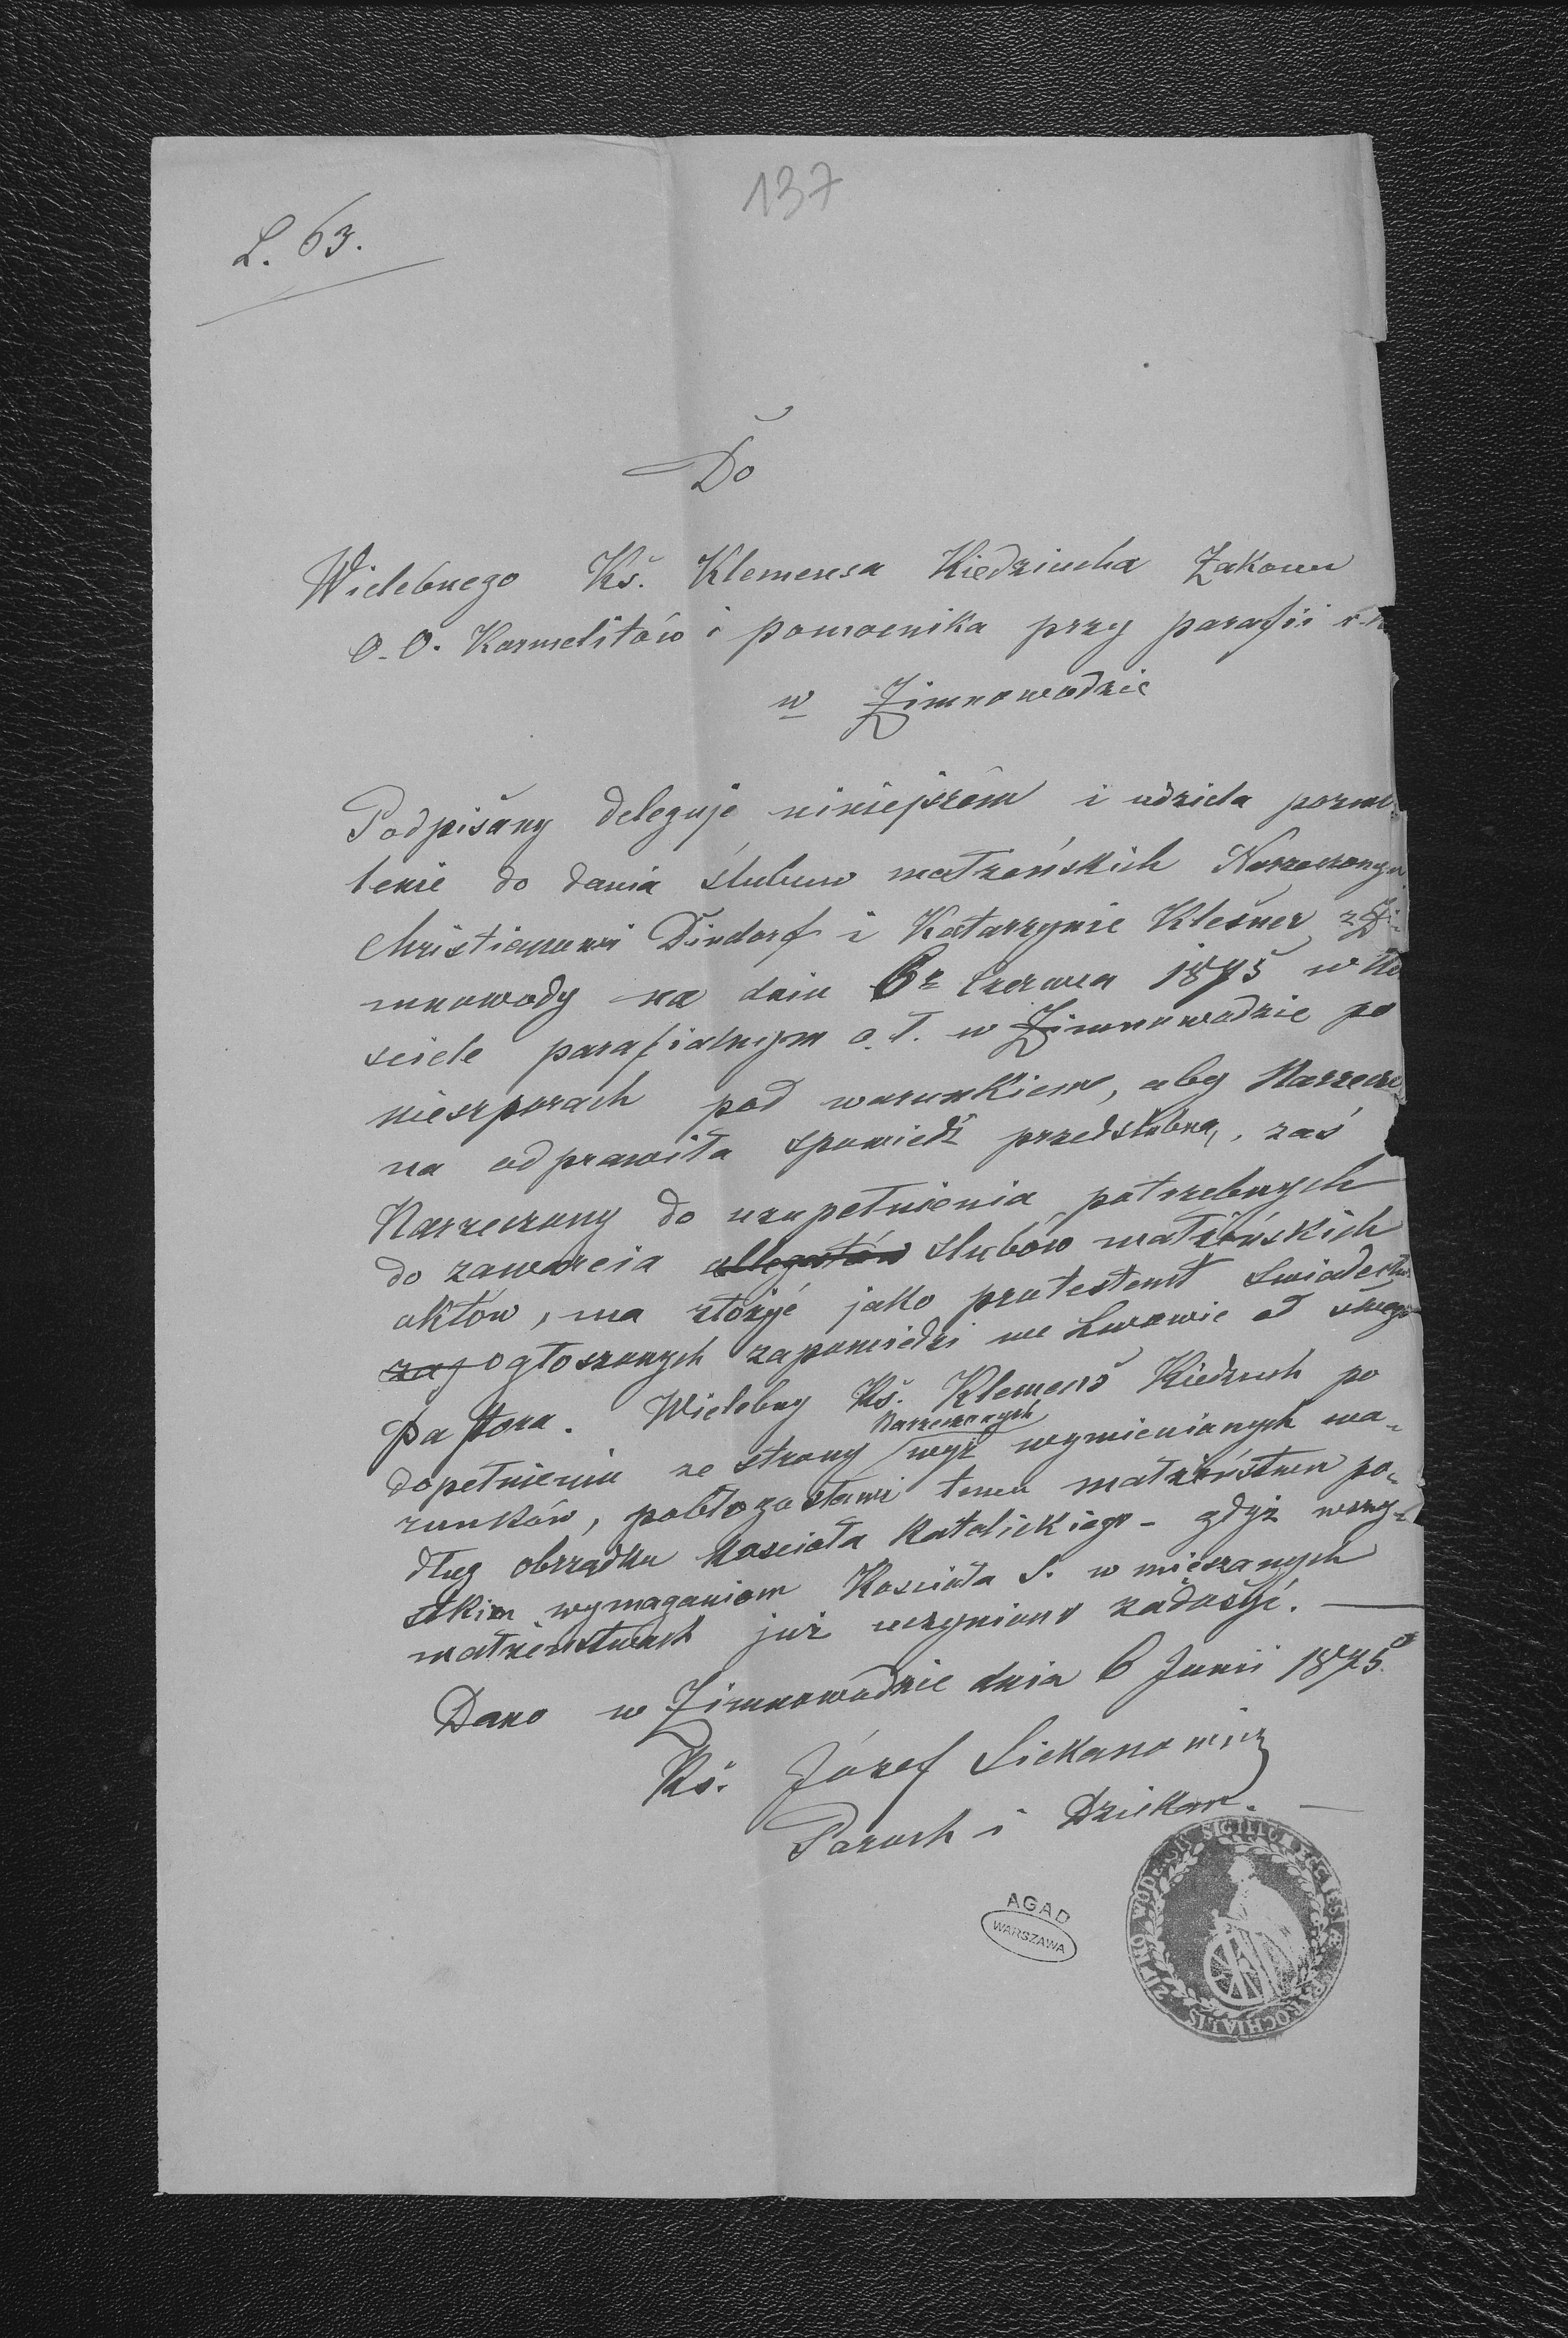 137
L. 63.
Do
Wielebnego Kś. Klemensa Kiedziucha Zakonu
O. O. Karmelitów i pomocnika przy parafii
w Zimnowodzie
Podpisany deleguje niniejszém i udziela pozwo-
lenie do dania ślubuw małżeńskich Narzeczonym
Christianowi Dindorf i Katarzynie Klesner z Zi-
mnowody na dniu 6º Czerwca 1875 w Ko
sciele parafialnym o. ł. w Zimnowodzie po
nieszporach pod warunkiem, aby Narzeczo
na odprawiła spowiedź przedslubną, zaś
Narzeczony do uzupełnienia potrzebnych
do zawarcia allegatów slubów małżeńskich
aktów, ma złożyć jako protestant swiadectwo
zaj ogłoszonych zapowiedzi we Lwowie od swego
pastora. Wielebny Kś. Klemens Kiedziuch po
Narzeczonych
dopełnieniu ze strony wyż wymienianych wa-
runków, pobłogosławi temu małżeństwu po-
dług obrządku Koscioła Katolickiego - gdyż wszy-
stkim wymaganiom Kosciała S. w mieszanych
małżenstwach już uczyniono zadosyć. —
Dano w Zimnowodzie dnia 6 Junii 1875.
Kś. Józef Siekanowicz
Paroch i Dziekan. —
AGAD
WARSZAWA
SIGILL ECCLESIÆ PAROCHIALIS ZIMNO WODE